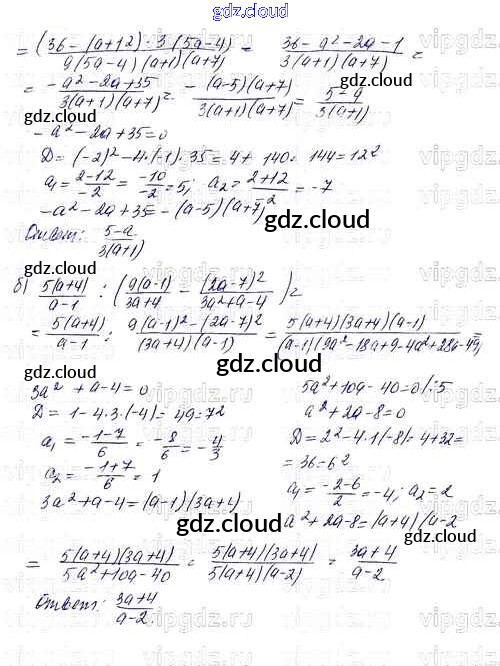 gdz.cloud
= (36 - (a+12)·3(5a-4) / 9(5a-4)(a+1)(a+7) = 36-a²-2a-1 / 3(a+1)(a+7) =
= -a²-2a+35 / 3(a+1)(a+7) = -(a-5)(a+7) / 3(a+1)(a+7) = 5-a / 3(a+1)
-a²-2a+35=0
D=(-2)²-4·(-1)·35=4+140=144=12²
a₁ = 2-12 / -2 = -10 / -2 = 5; a₂ = 2+12 / -2 = -7
-a²-2a+35=-(a-5)(a+7)
gdz.cloud
Ответ: 5-a / 3(a+1)
б) 5(a+4) / a-1 : (9(a-1) / 3a+4 - (2a-7)² / 3a²+a-4) =
= 5(a+4) / a-1 : 9(a-1)²-(2a-7)² / (3a+4)(a-1) = 5(a+4)(3a+4)(a-1) / (a-1)(9a²-18a+9-4a²+28a-49) =
gdz.cloud
3a²+a-4=0
D=1-4·3·(-4)=49=7²
a₁ = -1-7 / 6 = -8 / 6 = -4 / 3
a₂ = -1+7 / 6 = 1
3a²+a-4=(a-1)(3a+4)
5a²+10a-40=0/:5
a²+2a-8=0
D=2²-4·1(-8)=4+32=
=36=6²
a₁ = -2-6 / 2 = -4; a₂=2
a²+2a-8=(a+4)(a-2
gdz.cloud
= 5(a+4)(3a+4) / 5a²+10a-40 = 5(a+4)(3a+4) / 5(a+4)(a-2) = 3a+4 / a-2
Ответ: 3a+4 / a-2.
gdz.cloud